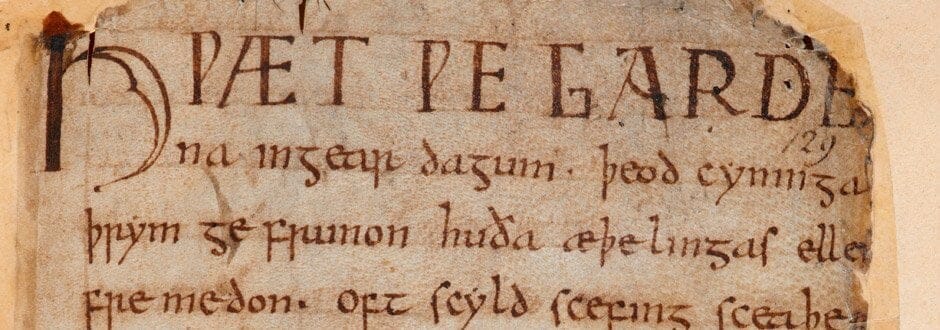 HǷÆT ǷE GARDE
129
na ingear dagum. þeod cyninga
þrym ge frunon huða æþelingas elle
fre medon. oft scyld scefing sceaþe